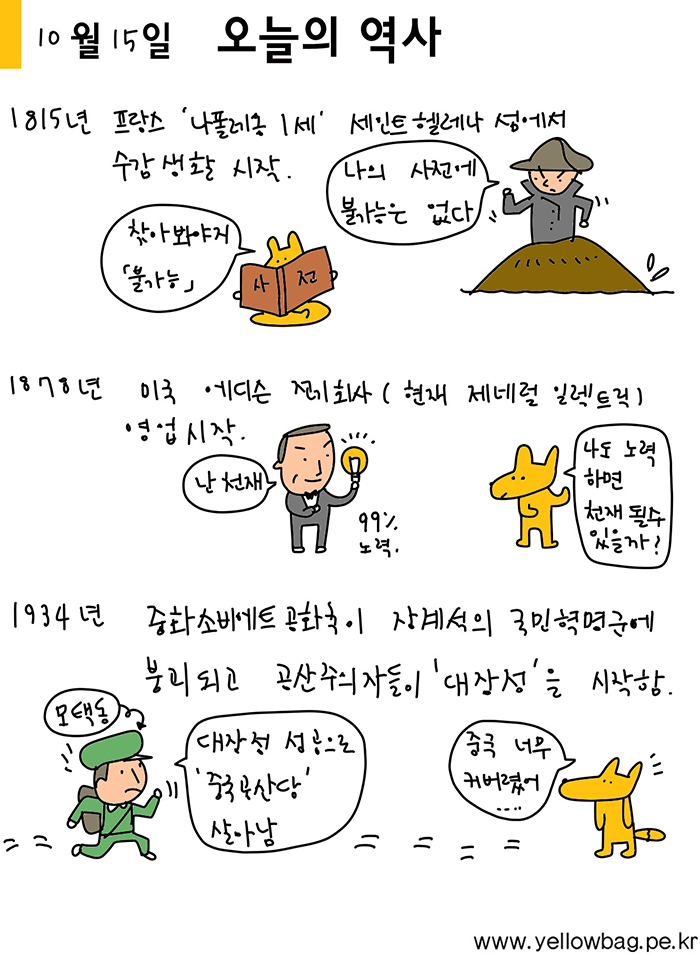 10월 15일 오늘의 역사
1815년 프랑스 '나폴레옹 1세' 세인트헬레나 섬에서
수감생활 시작.
나의 사전에
불가능은 없다
찾아봐야지
「불가능」
사 전
1878년 미국 에디슨 전기회사 (현재 제네럴 일렉트릭)
영업시작.
난 천재
99%
노력.
나도 노력
하면
천재 될수
있을까?
1934년 중화소비에트공화국이 장계석의 국민혁명군에
붕괴되고 공산주의자들이 '대장정'을 시작함.
모택동
대장정 성공으로
'중국공산당'
살아남
중국 너무
커버렸어
....
www.yellowbag.pe.kr